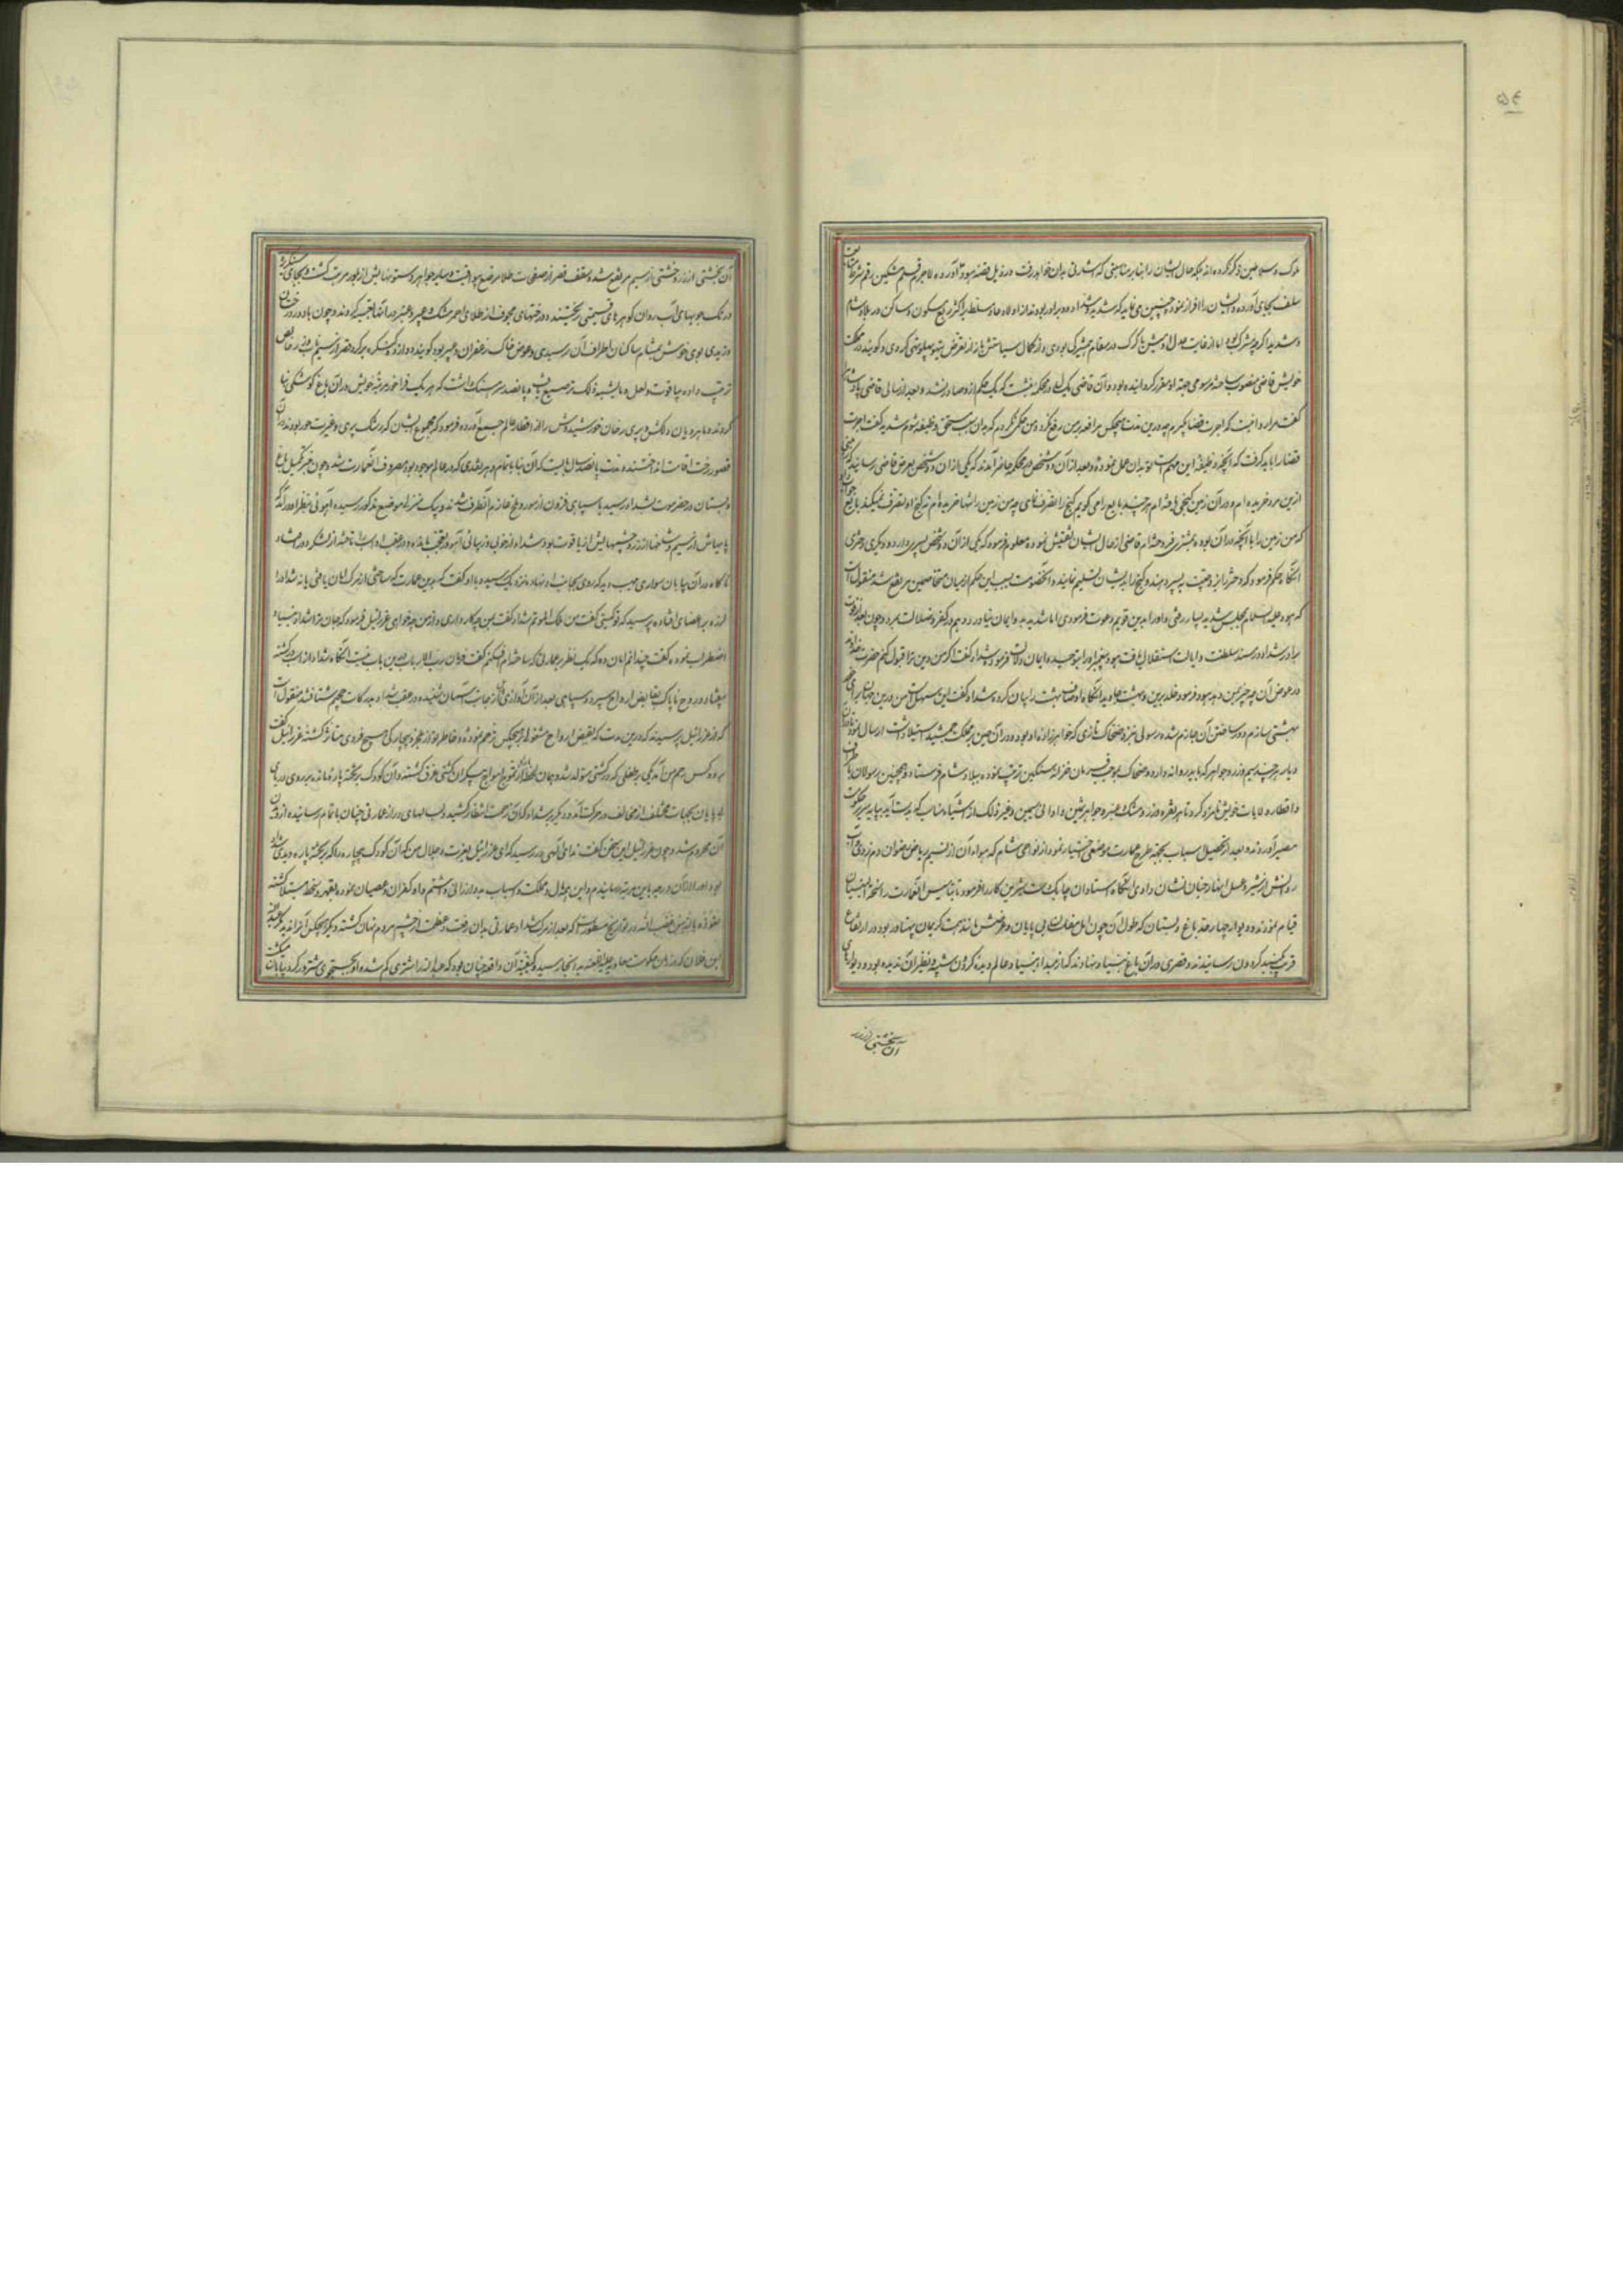 ۵۴
ملوک و سلاطین ذکر نکرده اند بلکه حال ایشان را بنابر مناسبتی که اشارتی بدان خواهد رفت در ذیل قصه هود آورده لاجرم قلم مشکین رقم شرط متابعت
سلف بجای آورده ایشان را افراز نمود و چنین می نماید که شدید و شداد دو برادر بودند از اولاد عاد و مسلط بر اکثر ربع مسکون و ساکن در بلاد شام
و شدید اگرچه مشرک بود اما از غایت عدل او میش با گرگ در مقام بودی و از کمال سیاستش باز از تعرض تیهو پهلو تهی کردی و گویند در مملکت
خویش قاضی منصوب ساخته مرسومی جهة او مقرر گردانیده بود و آن قاضی یک سال در محکمه نشست که یک حکم ازو صادر نشد و بعد از سالی قاضی پادشاه را
گفت مرا روا نیست که اجرت قضا بگیرم چه درین مدت هیچکس مرافعه بمن رفع نکرد و من حکمی نکردم که بدان سبب مستحق وظیفه شوم شدید گفت اجرت
قضا را باید گرفت که آنچه وظیفه این مهم است تو بدان عمل نموده و بعد از آن دو شخص در محکمه حاضر آمدند که یکی از آن دو شخص بعرض قاضی رسانید که من
ازین مرد خریده ام و در آن زمین گنجی یافته ام هر چند بایع را می گویم گنج را تصرف نمای چه من زمین را تنها خریده ام نه گنج او تصرف نمیکند بایع جواب داد
که من زمین را با آنچه در آن بوده بمشتری فروخته ام قاضی از حال ایشان تفتیش نموده معلوم فرمود که یکی از آن دو شخص پسری دارد و دیگری دختری
آنگاه حکم فرمود که دختر را بزوجیت به پسر دهند و گنج را بایشان تسلیم نمایند و آن خصومت بسبب این حکم از میان متخاصمین مرتفع شد منقولست
که هود علیه السلام بمجلس شدید بسیار رفتی و او را بدین قویم دعوت فرمودی اما شدید بدو ایمان نیاورد و هم در کفر و ضلالت بمرد و چون بعد از فوت
برادر شداد در مسند سلطنت و ایالت استقلال یافت هود پیغمبر او را بتوحید و ایمان دلالت فرمود شداد گفت اگر من دین ترا قبول کنم حضرت خداوند
در عوض آن چه چیز بمن دهد هود فرمود خلد برین و بهشت جاوید آنگاه اوصاف بهشت را بیان کرده شداد گفت این سهلست من درین جهان برای خود
بهشتی بسازم و در ساختن آن جازم شده رسولی نزد ضحاک تازی که خواهرزاده او بود و در آن حین بر مملکت جمشید استیلا داشت ارسال نمود تا در آن
دیار هر چند سیم و زر و جواهر که یابد روانه دارد و ضحاک بموجب فرمان خزانه سنگین ترتیب نموده ببلاد شام فرستاد و همچنین رسولان باطراف
و اقطار ولایات خویش نامزد کرد تا هر نقره و زر و مشک و عنبر و جواهر ثمین و اوانی سیمین و غیر ذلک از اشیاء مناسب که بدست آید بپایه سریر حکومت
مصیر آورند و بعد از تحصیل اسباب بجهة طرح عمارت موضعی اختیار نمود از نواحی شام که هواء آن از نسیم ریاض رضوان دم زدی و آب
روانش از شیر و عسل انهار جنان نشان دادی آنگاه استادان چابک دست شیرین کار را فرمود تا بتاسیس آن عمارت
قیام نمودند و دیوار چهار حد باغ و بستان که طول آن چون امل بی پایان و عرضش مانند همت کریمان پهناور بود در ارتفاع
قریب بگنبد گردون رسانیدند و قصری در آن باغ بنیاد نهادند که از مبداء بنیاد عالم دیده گردون شبیه و نظیر آن ندیده بود و دیوارهای
آن خشتی از زر
آن خشتی از زر و خشتی از سیم مرتفع شد و سقف قصر از صفحات طلا مرصع بیواقیت و سایر جواهر و ستونهایش از بلور مرتب گشت و بجای سنگریزه
در تک جویهای آب روان گوهرهای قیمتی ریختند و درختهای مجوف از طلای احمر بمشک و عبیر و عنبر در آنها تعبیه کردند و چون باد وزد در جنان
وزیدی بوی خوش بمشام ساکنان اطراف آن رسیدی و عوض خاک زعفران و عبیر بود گویند دوازده کنگره بر گرد قصر از سیم ناب و زر خالص
ترتیب داده بیاقوت و لعل و مایشبه ذلک ترصیع یافت و پانصد سرهنگ داشت که هر یک فراخور مرتبه خویش در آن باغ کوشکی بنا
کردند و ماهرویان دلکش و پری رخان خورشیدوش را از اقطار عالم جمیع آورده فرمود که مجموع ایشان که رشک پری و غیرت حور بودند در آن
قصور رخت اقامت انداختند و مدت پانصد سال بایست که آن بنا باتمام و هر نقدی که در عالم موجود بود مصروف آن عمارت شد و چون خبر تکمیل باغ
و بستان در حضرموت بشداد رسید با سپاهی افزون از مور و ملخ عازم آنطرف شدند و بیک منزله موضع مذکور رسیده آهوئی بنظر او درآمد که
پایهاش از سیم و شاخها از زر و چشمهایش از یاقوت بود شداد از خوبی و زیبائی آهو در تعجب مانده در عقب او اسب تاخت از لشکر دور افتاد
ناگاه در آن بیابان سواری مهیب دید که روی بجانب او نهاد و نزدیک رسیده با او گفت که بدین عمارت که ساختی از مرگ امان یافتی یا نه شداد را
لرزه بر اعضا افتاده پرسید که تو کیستی گفت من ملک الموتم شداد گفت بمن چه کار داری و از من چه خواهی عزرائیل فرمود که جان ترا شداد بنیاد
اضطراب نموده گفت چندانم امان ده که یک نظر بر عمارتی که ساخته ام افکنم گفت فرمان رب الارباب درین باب نیست آنگاه شداد از اسب درگشته
بیفتاد و روح ناپاک بقابض ارواح سپرد و سپاهی بعد از آن آوازی از جانب آسمان شنیده در عقب شداد بدرکات جحیم شتافتند منقولست
که از عزرائیل پرسیدند که درین مدت که بقبض ارواح مشغولی بر هیچکس ترحم نمودی و خاطر تو از عجز و بیچارگی هیچ فردی متاثر گشته عزرائیل گفت
بر دو کس رحم من آمد یکی بر طفلی که در کشتی متولد شد و همان لحظه از تموج امواج بیکران کشتی غرق گشته و آن کودک بر تخته پاره مانده بر روی دریای
بی پایان بجهات مختلف از مخالف در حرکت آمده و دیگر بر شداد که آن زحمت انتظار کشیده و سالهای دراز عمارتی چنان باتمام رسانیده از دیدن
آن محروم شد و چون عزرائیل این سخن گفت ندای الهی در رسید که ای عزرائیل بعزت و جلال من که آن کودک بیچاره را که بر تخته پاره دیدی شداد
بود او را از آن ورطه باین مرتبه رسانیدم و این همه مال و مملکت و اسباب بدو ارزانی داشتم و او کفران و عصیان نموده بقهر و سخط مبتلا گشته
نعوذ بالله من غضب الله در تواریخ مسطورست که بعد از مرگ شداد عمارتی بدان رفعت و عظمت از چشم مردم نهان گشته و دیگر هیچکس آنرا ندید مگر عبدالله
ابن قلابه که در زمان حکومت معاویه علیه اللعنه بدانجا رسید و کیفیت آن واقعه چنان بود که عبدالله را شتری گم شده او بجستجوی شتر در گرد بیابان میگشت